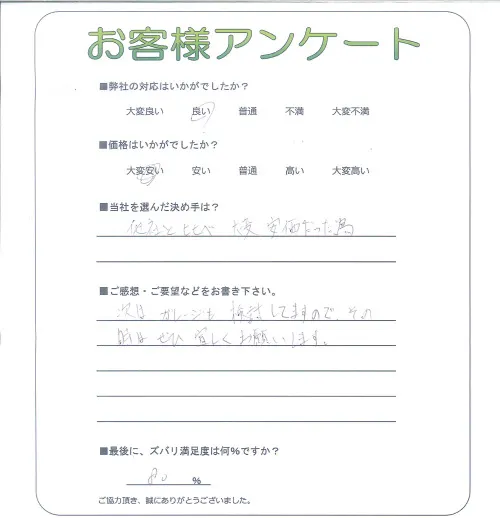 お客様アンケート
■弊社の対応はいかがでしたか？
大変良い 良い 普通 不満 大変不満
■価格はいかがでしたか？
大変安い 安い 普通 高い 大変高い
■当社を選んだ決め手は？
他店と比べ 大変 安価だった為
■ご感想・ご要望などをお書き下さい。
次は ガレージも 検討してますので、その
時は ぜひ 宜しく お願いします。
■最後に、ズバリ満足度は何%ですか？
80 %
ご協力頂き、誠にありがとうございました。